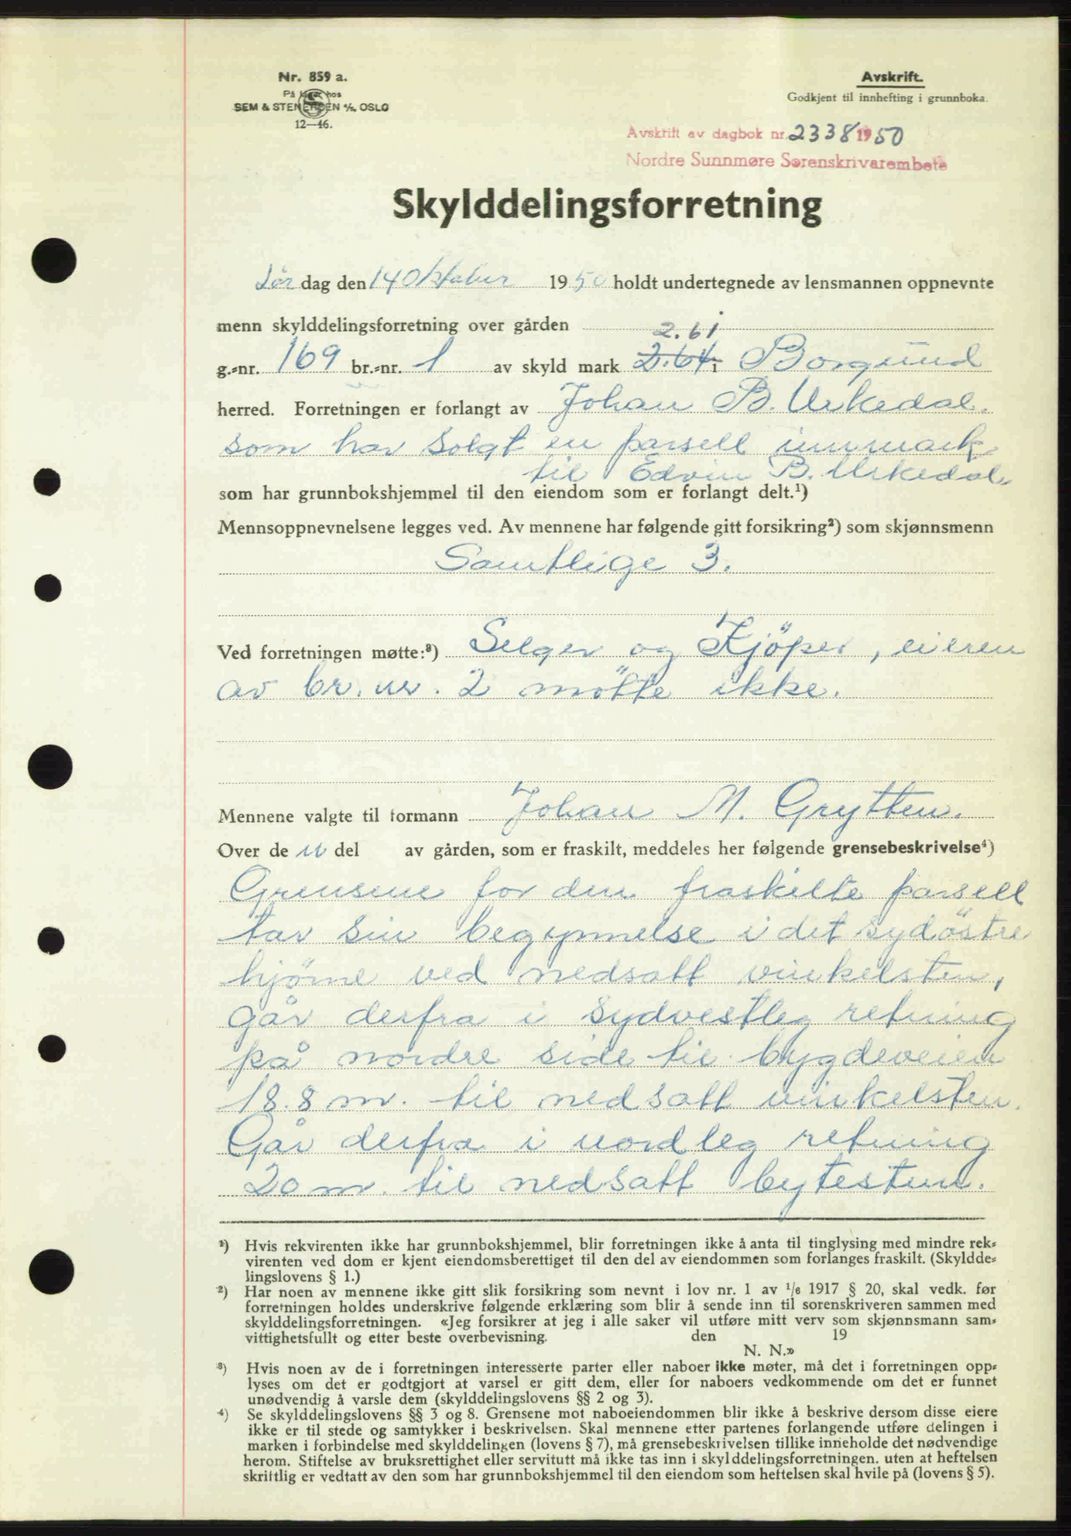 Nr. 859 a.
På lager hos
SEM & STENERSEN A/S, OSLO
12—46.
Avskrift.
Godkjent til innhefting i grunnboka.
Avskrift av dagbok nr. 2338 1950
Nordre Sunnmøre Sorenskrivarembete
Skylddelingsforretning
Lör dag den 14 Oktober 1950 holdt undertegnede av lensmannen oppnevnte
menn skylddelingsforretning over gården
2.61
g.=nr. 169 br.=nr. 1 av skyld mark 2.64 i Borgund
herred. Forretningen er forlangt av Johan B. Urkedal.
som har solgt en parsell innmark
til Edvin B. Urkedal.
som har grunnbokshjemmel til den eiendom som er forlangt delt.¹)
Mennsoppnevnelsene legges ved. Av mennene har følgende gitt forsikring²) som skjønnsmenn
Samtlige 3.
Ved forretningen møtte:³) Selger og Kjöper, eieren
av br. nr. 2 mötte ikke.
Mennene valgte til formann Johan M. Grytten.
Over de n del av gården, som er fraskilt, meddeles her følgende grensebeskrivelse⁴)
Grensene for den fraskilte parsell
tar sin begynnelse i det sydöstre
hjörne ved nedsatt vinkelsten,
går derfra i sydvestleg retning
på nordre side til bygdeveien
18.8 m. til nedsatt vinkelsten.
Går derfra i nordleg retning
20 m. til nedsatt bytesten.
¹) Hvis rekvirenten ikke har grunnbokshjemmel, blir forretningen ikke å anta til tinglysing med mindre rek=
virenten ved dom er kjent eiendomsberettiget til den del av eiendommen som forlanges fraskilt. (Skyldde=
lingslovens § 1.)
²) Har noen av mennene ikke gitt slik forsikring som nevnt i lov nr. 1 av 1/6 1917 § 20, skal vedk. før
forretningen holdes underskrive følgende erklæring som blir å sende inn til sorenskriveren sammen med
skylddelingsforretningen. «Jeg forsikrer at jeg i alle saker vil utføre mitt verv som skjønnsmann sam=
vittighetsfullt og etter beste overbevisning. den 19
N. N.»
³) Hvis noen av de i forretningen interesserte parter eller naboer ikke møter, må det i forretningen opp=
lyses om det er godtgjort at varsel er gitt dem, eller for naboers vedkommende om det er funnet
unødvendig å varsle dem (skylddelingslovens §§ 2 og 3).
⁴) Se skylddelingslovens §§ 3 og 8. Grensene mot naboeiendommen blir ikke å beskrive dersom disse eiere
ikke er til stede og samtykker i beskrivelsen. Skal mennene etter partenes forlangende utføre delingen i
marken i forbindelse med skylddelingen (lovens § 7), må grensebeskrivelsen tillike inneholde det nødvendige
herom. Stiftelse av bruksrettighet eller servitutt må ikke tas inn i skylddelingsforretningen, uten at heftelsen
skriftlig er vedtatt av den som har grunnbokshjemmel til den eiendom som heftelsen skal hvile på (lovens § 5).